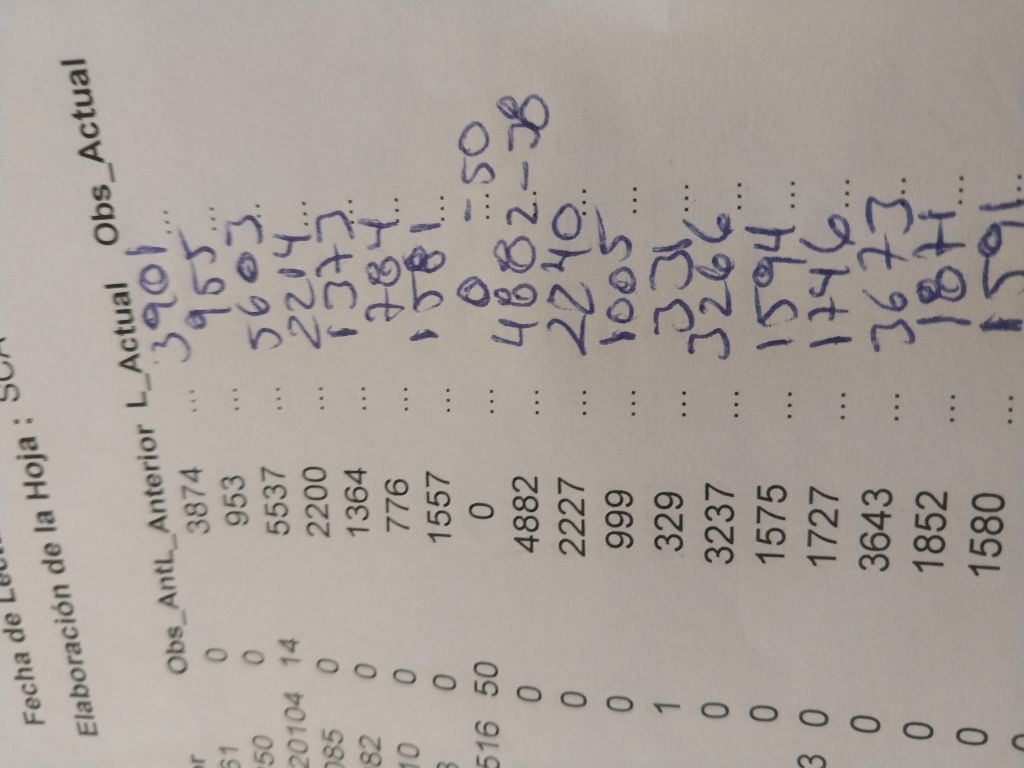 Fecha de
Elaboración de la Hoja :
Obs_AntL_Anterior L_Actual Obs_Actual
61 0 3874 ... 3901 ...
50 0 953 ... 955 ...
20104 14 5537 ... 5603 ...
085 0 2200 ... 2214 ...
82 0 1364 ... 1373 ...
10 0 776 ... 784 ...
0 1557 ... 1581 ...
516 50 0 ... 0 ... -50
0 4882 ... 4882 ... -38
0 2227 ... 2240 ...
0 999 ... 1005 ...
1 329 ... 331 ...
0 3237 ... 3266 ...
0 1575 ... 1594 ...
3 0 1727 ... 1746 ...
0 3643 ... 3673 ...
0 1852 ... 1871 ...
0 1580 ... 1591 ...